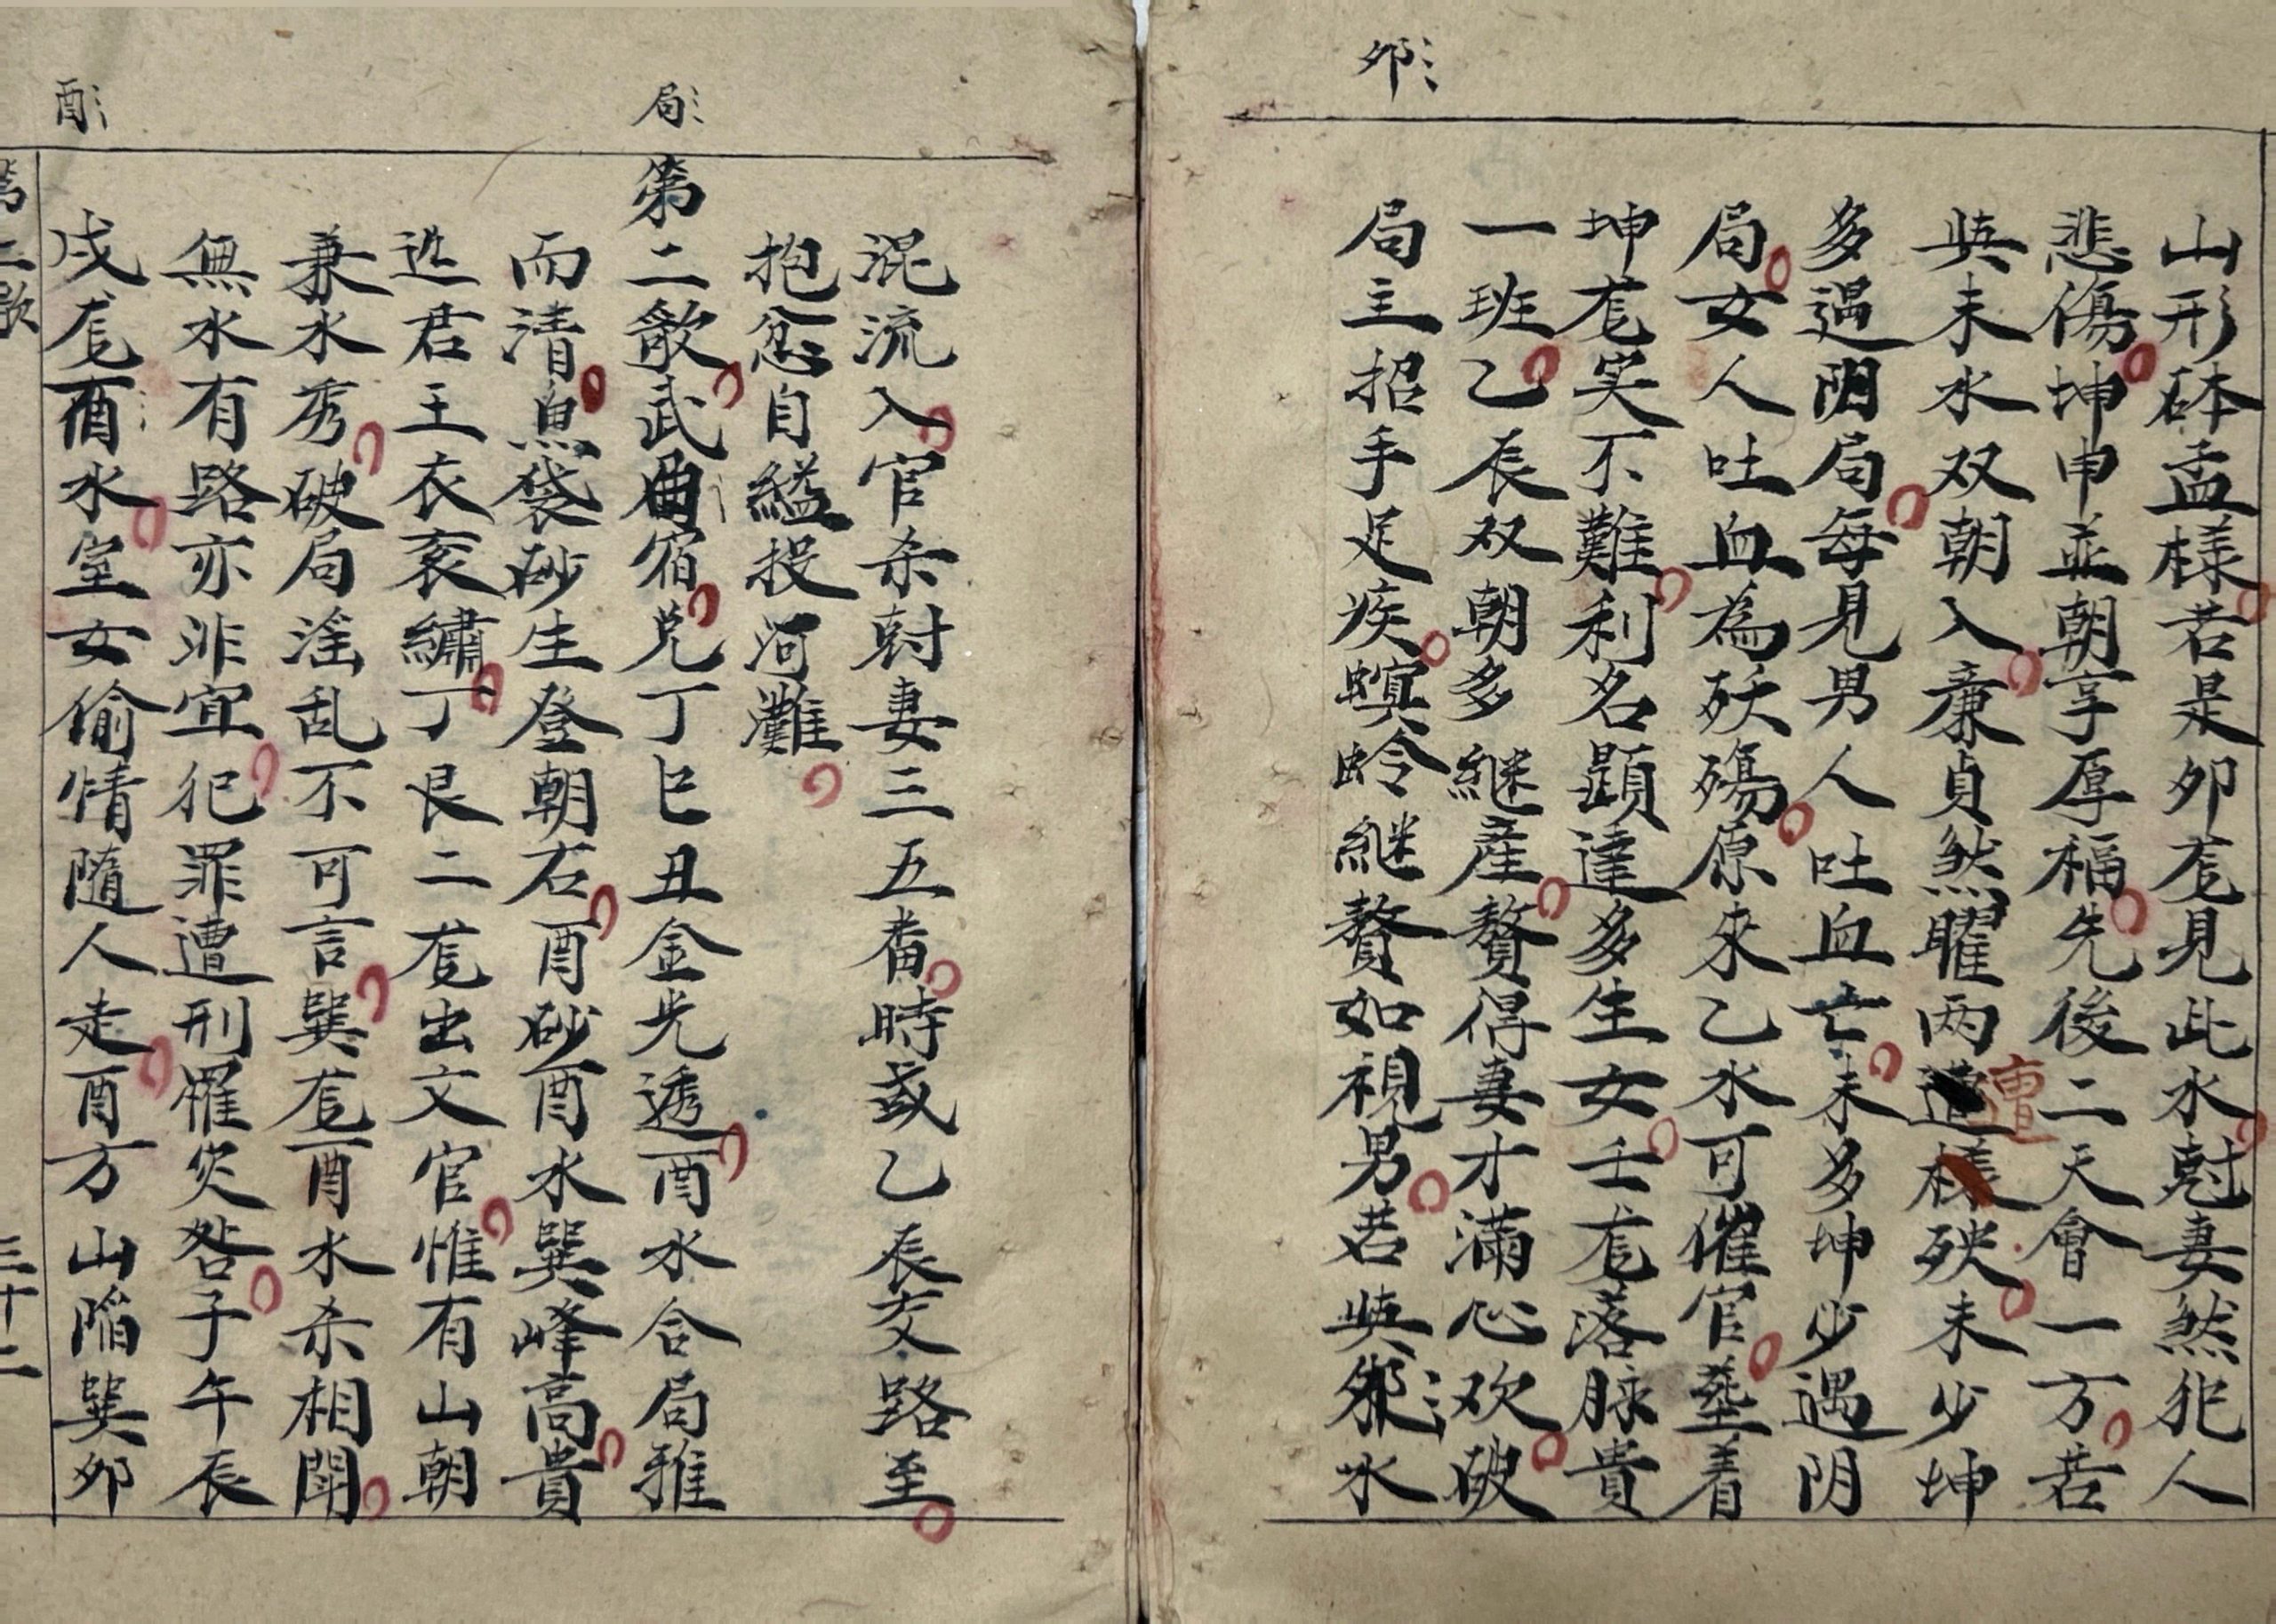 卯
山形砵盂様若是卯龙見此水尅妻煞犯人
悲傷坤申並朝享厚福先後二天會一方若
與未水双朝入亷貞然曜两遭様殃未少坤
遭
多遇阴局每見男人吐血亡未多坤少遇阴
局女人吐血為殀殤原來乙水可催官塟着
坤龙笑不難利名顕達多生女壬龙落脉貴
一班乙辰双朝多継産贅得妻才滿心欢破
局主招手足疾螟蛉継贅如親男若與卯水
混流入官杀尅妻三五番時或乙辰交路至
抱忿自縊投河灘
局
第二歌武曲宿兑丁巳丑金光透酉水合局雅
而清魚袋砂生登朝右酉砂酉水巽峰高貴
近君王衣衮繡丁艮二龙出文官惟有山朝
兼水秀破局滛乱不可言巽龙酉水杀相閗
無水有路亦非宜犯罪遭刑罹灾咎子午辰
戍龙酉水室女偷情隨人走酉方山陷巽卯
酉
三十二